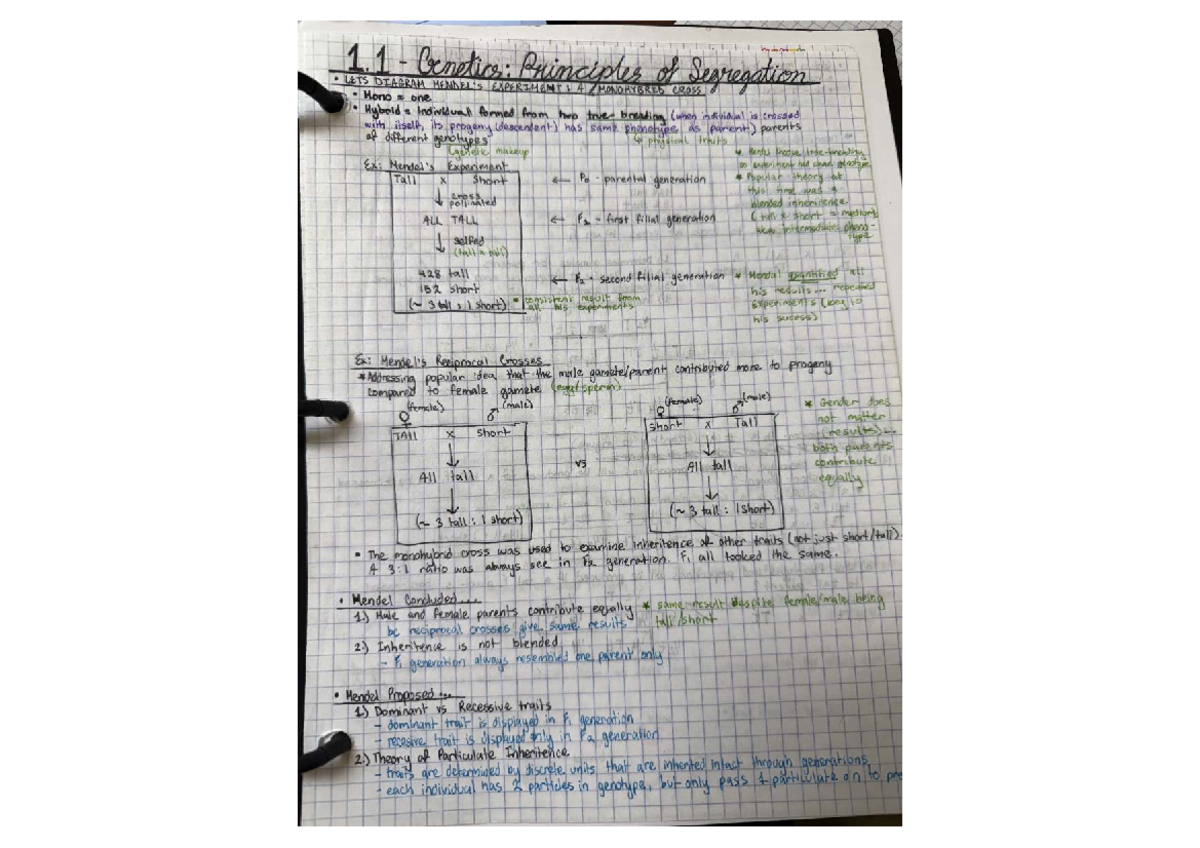 1.1 - Genetics: Principles of Segregation
• LETS DIAGRAM MENDEL'S EXPERIMENT: A MONOHYBRID CROSS
• Mono = one
• Hybrid = Individual formed from two true-breeding (when individual is crossed
with itself, its progeny (descendent) has same phenotype as parent) parents
of different genotypes
↳ physical traits
↳ genetic makeup
Ex: Mendel's Experiment
Tall x Short
↓ cross pollinated
ALL TALL
↓ selfed
(tall x tall)
428 tall
152 short
(~ 3 tall : 1 short)
← P₀ - parental generation
← F₁ - first filial generation
← F₂ - second filial generation
* consistent result from
all his experiments
* Popular theory at
this time was
blended inheritence
(tall x short = medium)
* Mendel quantified all
his results... repeated
experiments (key to
his success)
Ex: Mendel's Reciprocal Crosses
* Addressing popular idea that the male gamete/parent contributed more to progeny
compared to female gamete (egg/sperm)
♀ (female) ♂ (male)
TAll x Short
↓
All tall
↓
(~ 3 tall : 1 short)
vs
♀ (female) ♂ (male)
Short x Tall
↓
All tall
↓
(~ 3 tall : 1 short)
* Gender does
not matter
(results)...
both parents
contribute
equally
• The monohybrid cross was used to examine inheritence of other traits (not just short/tall).
A 3:1 ratio was always see in F₂ generation. F₁ all looked the same.
• Mendel Concluded...
1.) Male and female parents contribute equally
bc reciprocal crosses give same results
* same result despite female/male being
tall/short
2.) Inheritence is not blended
- F₁ generation always resembled one parent only
• Mendel Proposed...
1.) Dominant vs Recessive traits
- dominant trait is displayed in F₁ generation
- recesive trait is displayed only in F₂ generation
2.) Theory of Particulate Inheritence
- traits are determined by discrete units that are inherited intact through generations
- each individual has 2 particles in genotype, but only pass 1 particulate on to